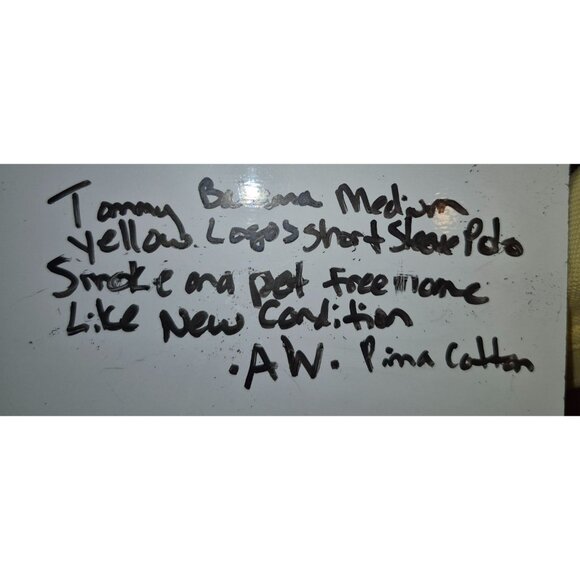 Tommy Bahama Medium
Yellow Logos Short Sleeve Polo
Smoke and pet free home
Like New Condition
.AW. Pima Cotton